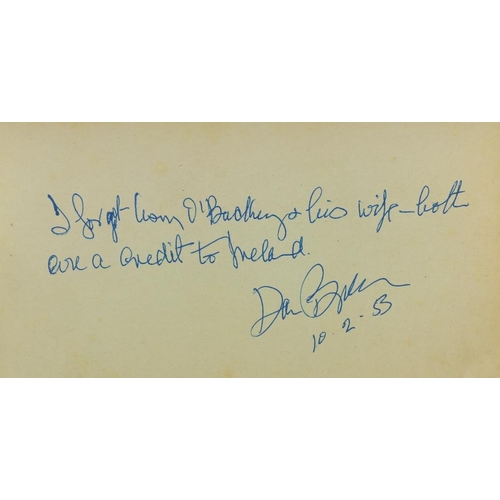 I forget Liam O'Buckley & his wife – both
are a credit to Ireland.
Dan Breen
10.2.53